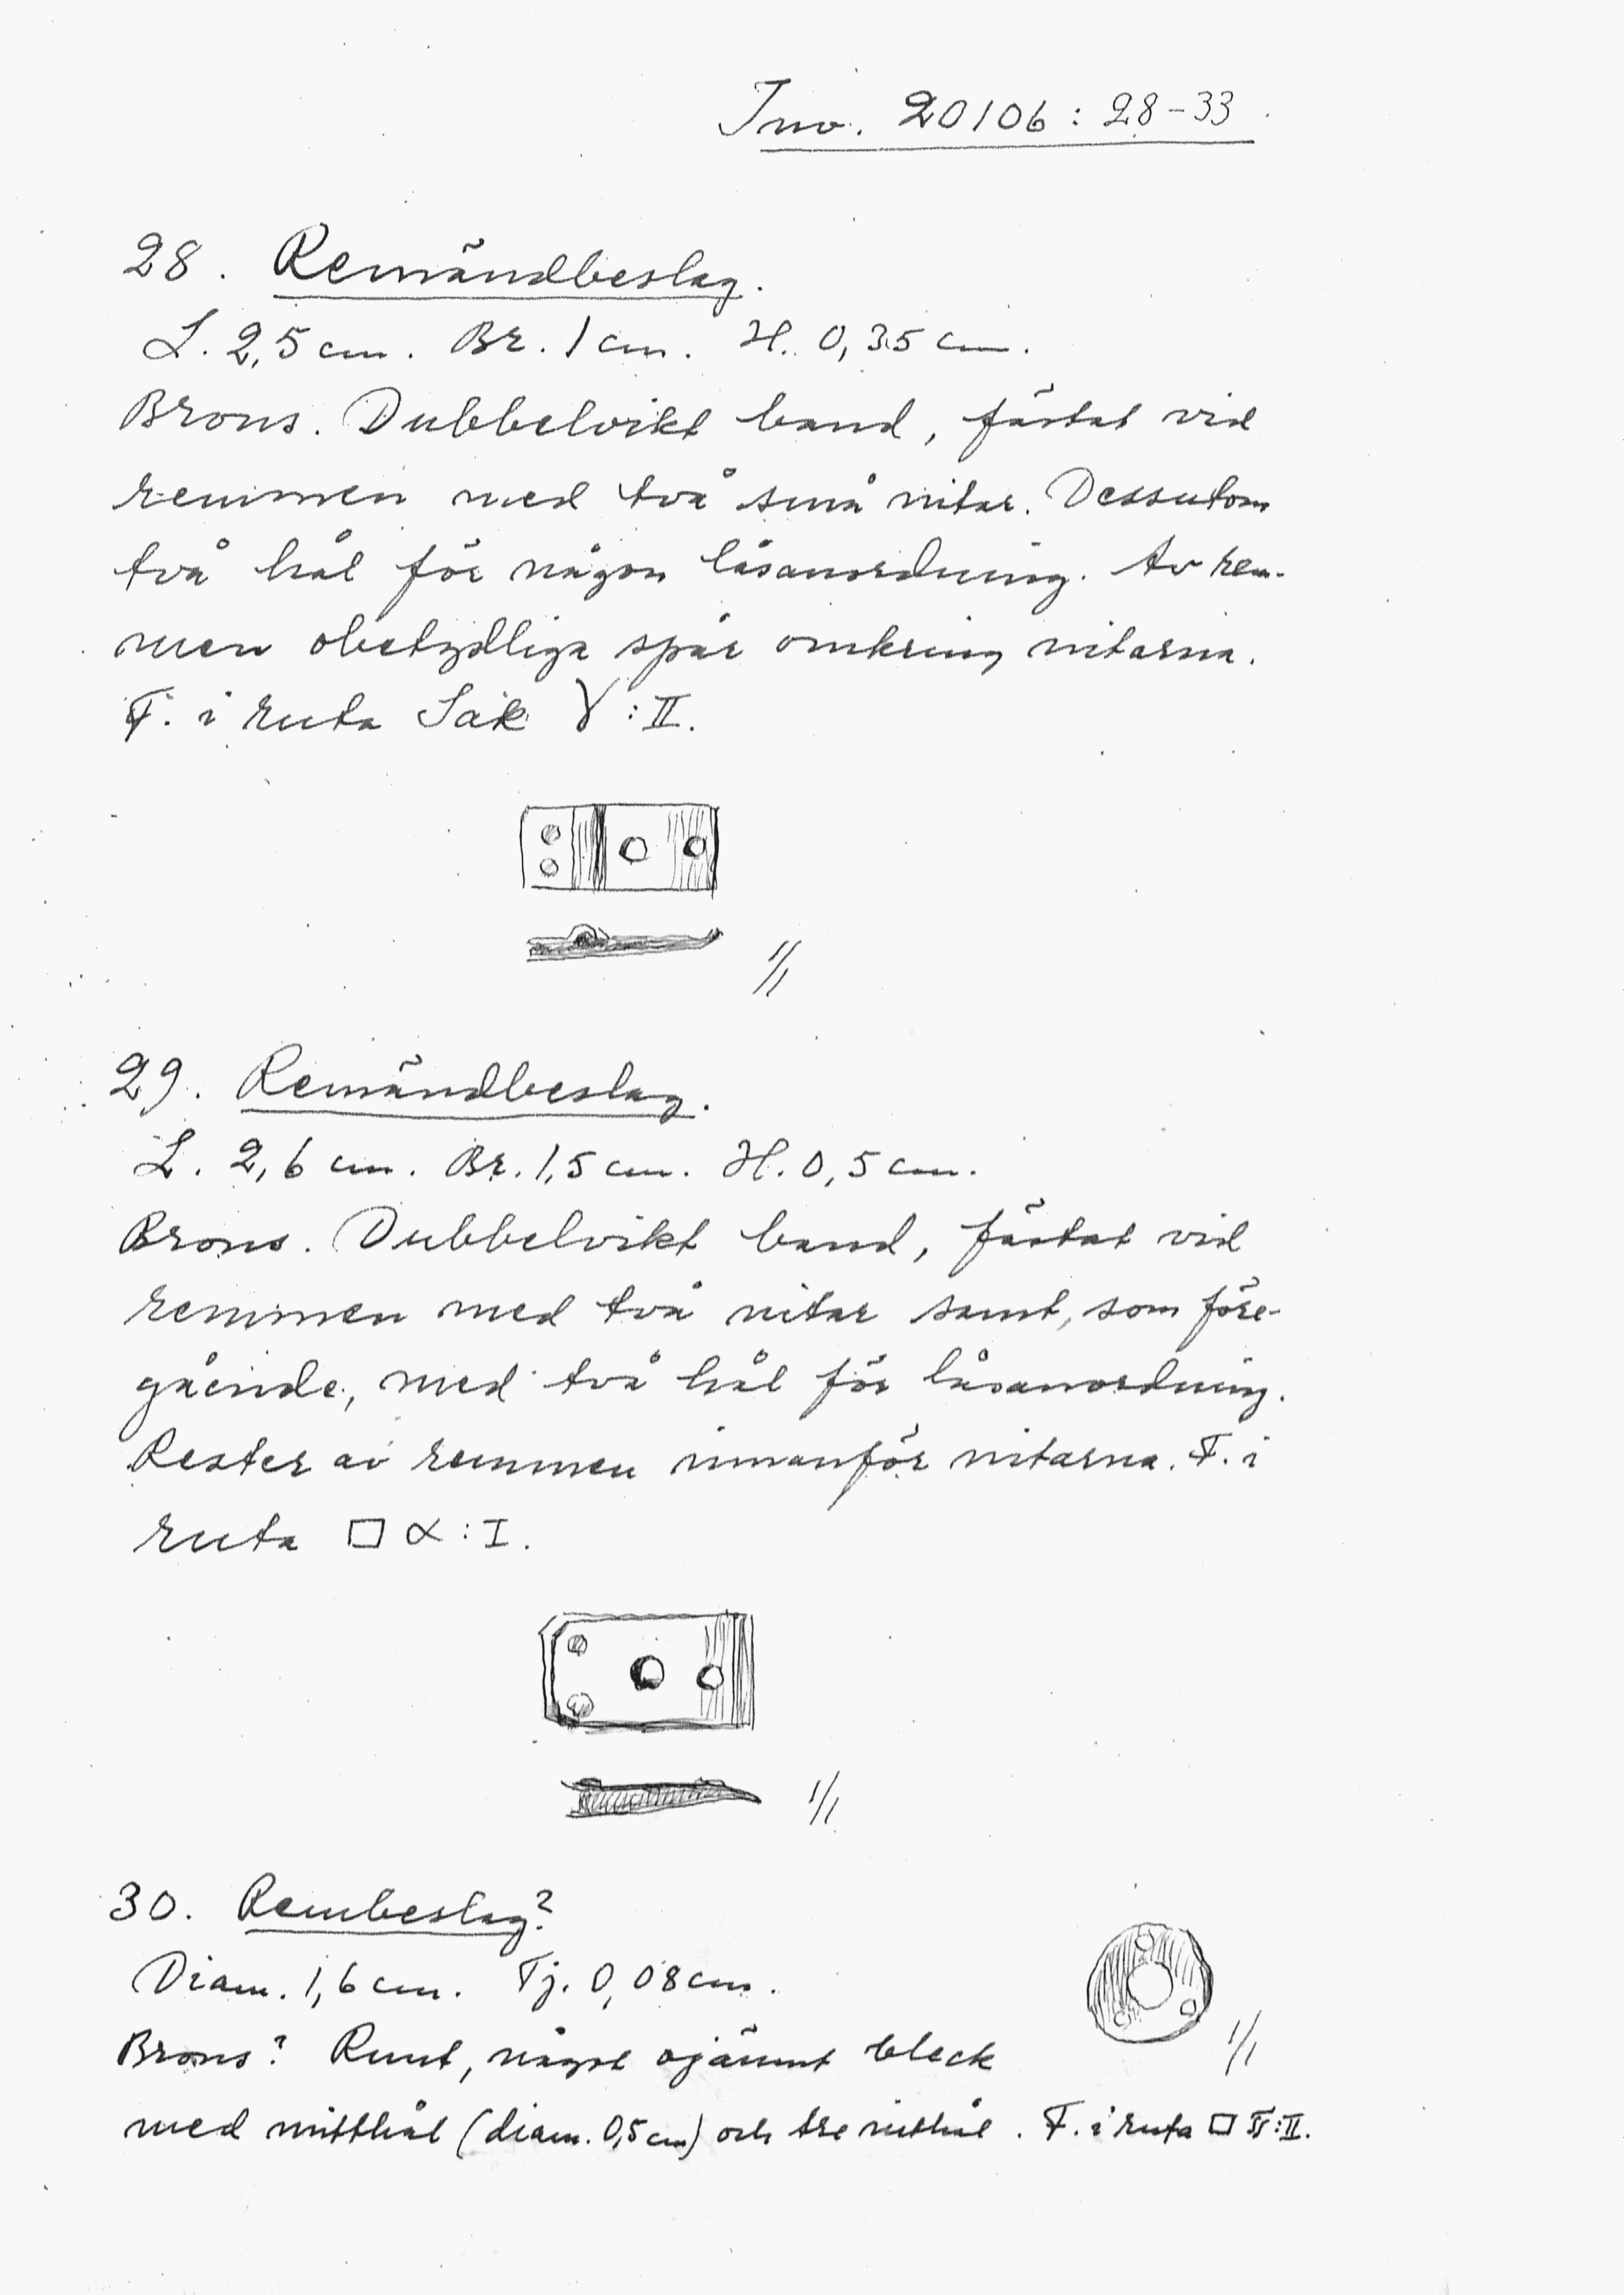 Inv. 20106: 28-33.
28. Remändbeslag.
L. 2,5 cm. Br. 1 cm. H. 0,35 cm.
Brons. Dubbelvikt band, fästat vid
remmen med två små nitar. Dessutom
två hål för någon låsanordning. Av rem-
men obetydliga spår omkring nitarna.
F. i ruta Sak γ:II.
1/1
29. Remändbeslag.
L. 2,6 cm. Br. 1,5 cm. H. 0,5 cm.
Brons. Dubbelvikt band, fästat vid
remmen med två nitar samt, som före-
gående, med två hål för låsanordning.
Rester av remmen innanför nitarna. F. i
ruta □ α:I.
1/1
30. Rembeslag?
Diam. 1,6 cm. Tj. 0,08 cm.
1/1
Brons? Runt, något ojämnt bleck
med mitthål (diam. 0,5 cm) och tre nithål. F. i ruta □ :II.